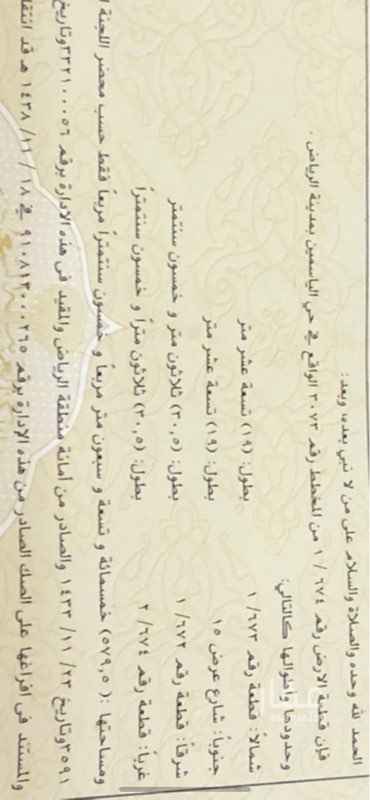 الحمد لله وحده والصلاة والسلام على من لا نبي بعده، وبعد:
فإن قطعة الارض رقم ٦٧٤ / ١ من المخطط رقم ٣٠٧٣ الواقع في حي الياسمين بمدينة الرياض .
وحدودها واطوالها كالتالي:
شمالاً: قطعة رقم ٦٧٣ /١ بطول: (١٩) تسعة عشر متر
جنوباً: شارع عرض ١٥ بطول: (١٩) تسعة عشر متر
شرقاً: قطعة رقم ٦٧٢ /١ بطول: (٣٠,٥) ثلاثون متر و خمسون سنتمتر
غرباً: قطعة رقم ٦٧٤ /٢ بطول: (٣٠,٥) ثلاثون متراً و خمسون سنتمتراً
ومساحتها :( ٥٧٩,٥) خمسمائة و تسعة و سبعون متر مربعاً و خمسون سنتمتراً مربعاً فقط حسب محضر اللجنة
٣٥٩١وتاريخ ٢٣ /١١ /١٤٣٣ والصادر من أمانة منطقة الرياض والمقيد في هذه الادارة برقم ٣٣٢١٠٠٠٥٦وتاريخ
والمستند في افراغها على الصك الصادر من هذه الإدارة برقم ٩١٠٨١٣٠٠٠٢٦٥ في ١٨ /١١ /١٤٣٨ هـ قد